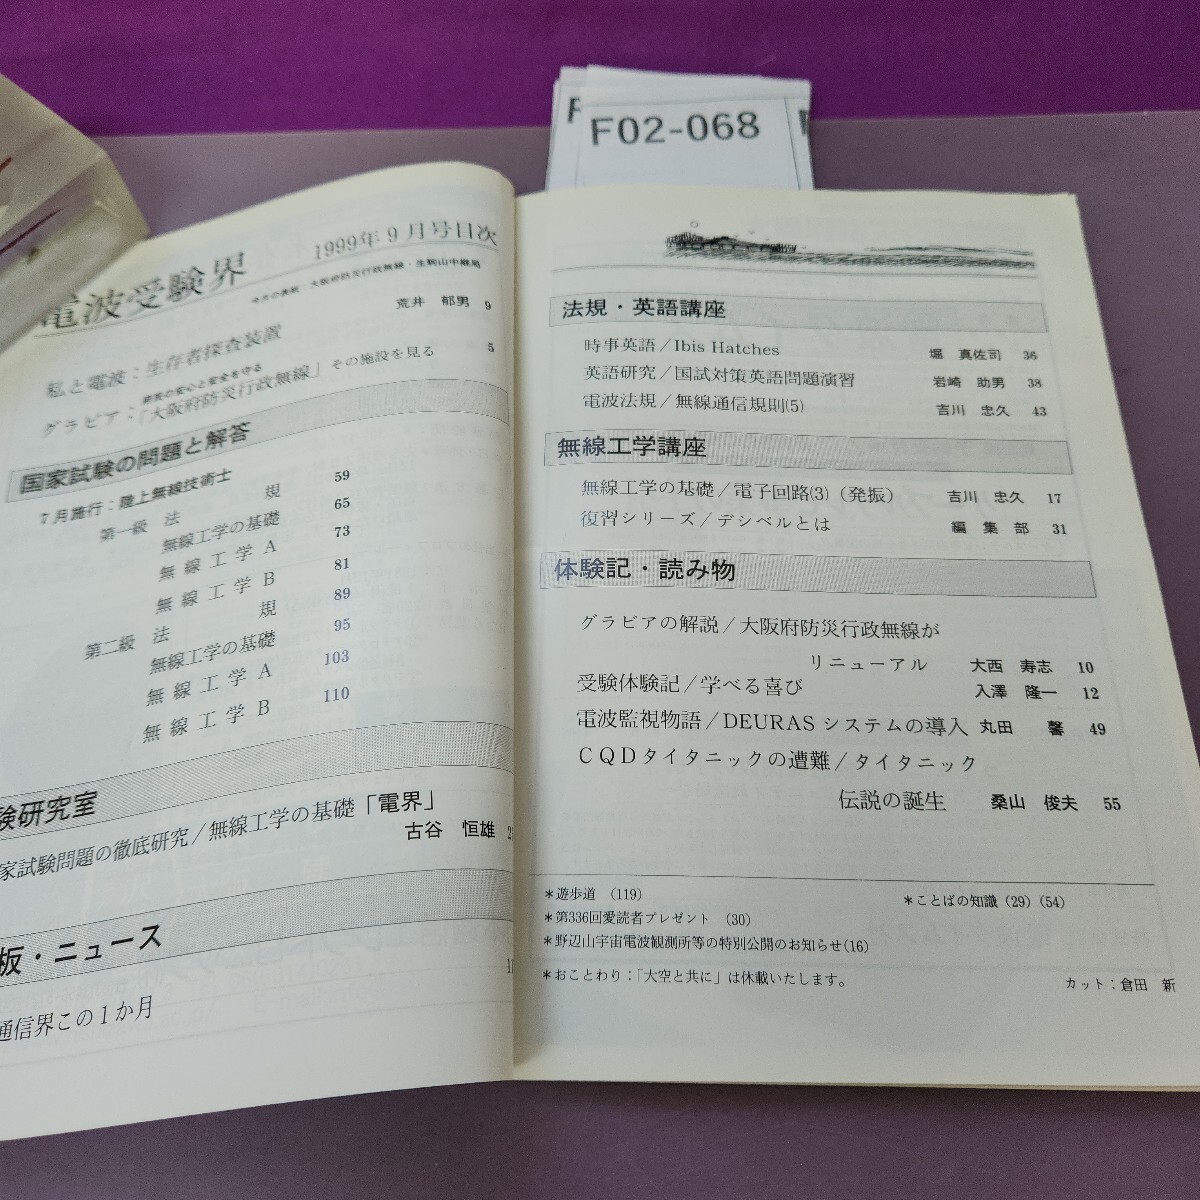 F02-068
電波受験界
1999年9月号目次
今月の表紙・大阪府防災行政無線・生駒山中継局
私と電波：生存者探査装置 荒井 郁男 9
府民の安心と安全を守る
グラビア：「大阪府防災行政無線」その施設を見る 5
国家試験の問題と解答
7月施行：陸上無線技術士
第一級 法 規 59
無線工学の基礎 65
無線工学A 73
無線工学B 81
第二級 法 規 89
無線工学の基礎 95
無線工学A 103
無線工学B 110
験研究室
家試験問題の徹底研究/無線工学の基礎「電界」
古谷 恒雄
板・ニュース
通信界この1か月
法規・英語講座
時事英語/Ibis Hatches 堀 真佐司 36
英語研究/国試対策英語問題演習 岩崎 助男 38
電波法規/無線通信規則(5) 吉川 忠久 43
無線工学講座
無線工学の基礎/電子回路(3)（発振） 吉川 忠久 17
復習シリーズ/デシベルとは 編集部 31
体験記・読み物
グラビアの解説/大阪府防災行政無線が
リニューアル 大西 寿志 10
受験体験記/学べる喜び 入澤 隆一 12
電波監視物語/DEURASシステムの導入 丸田 馨 49
CQDタイタニックの遭難/タイタニック
伝説の誕生 桑山 俊夫 55
＊遊歩道 (119) ＊ことばの知識(29)(54)
＊第336回愛読者プレゼント (30)
＊野辺山宇宙電波観測所等の特別公開のお知らせ(16)
＊おことわり：「大空と共に」は休載いたします。
カット：倉田 新